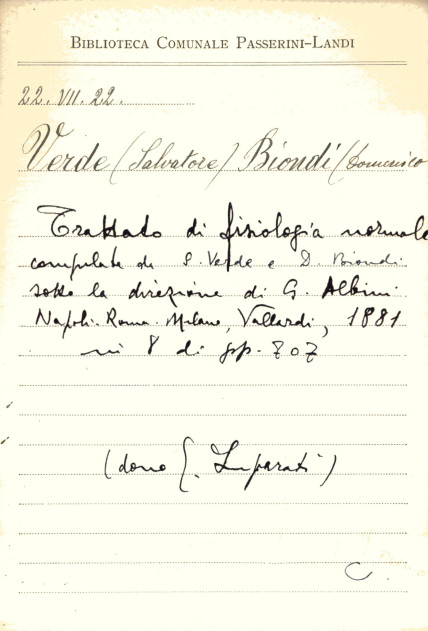 BIBLIOTECA COMUNALE PASSERINI-LANDI
22. VII. 22.
Verde (Salvatore) Biondi (Domenico
Trattato di fisiologia normale
compilato da S. Verde e D. Biondi
sotto la direzione di G. Albini
Napoli. Roma. Milano, Vallardi, 1881
in 8 di pp. 707
(dono Luparati)
C